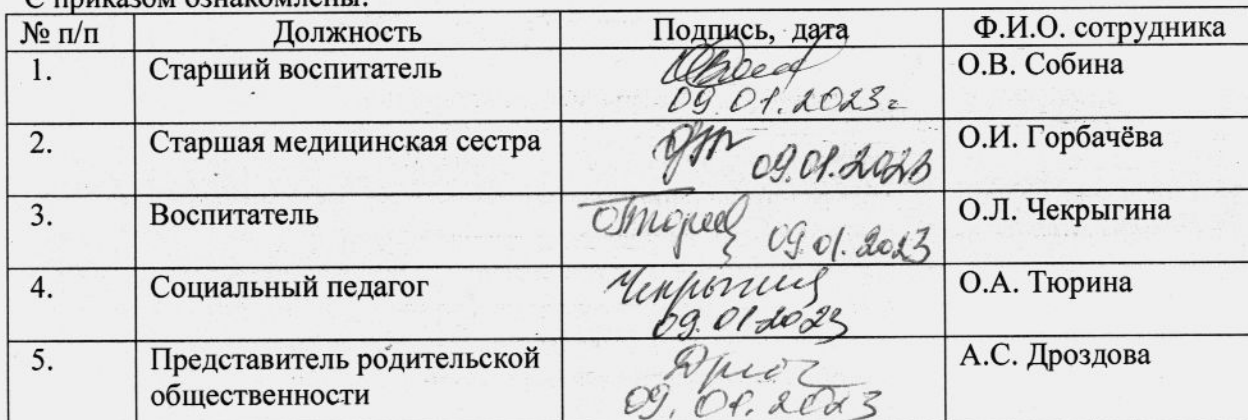 С приказом ознакомлены:
№ п/п Должность Подпись, дата Ф.И.О. сотрудника
1. Старший воспитатель О.В. Собина
09.01.2023г
2. Старшая медицинская сестра 09.01.2023 О.И. Горбачёва
3. Воспитатель 09.01.2023 О.Л. Чекрыгина
4. Социальный педагог О.А. Тюрина
09.01.2023
5. Представитель родительской А.С. Дроздова
общественности 09.01.2023